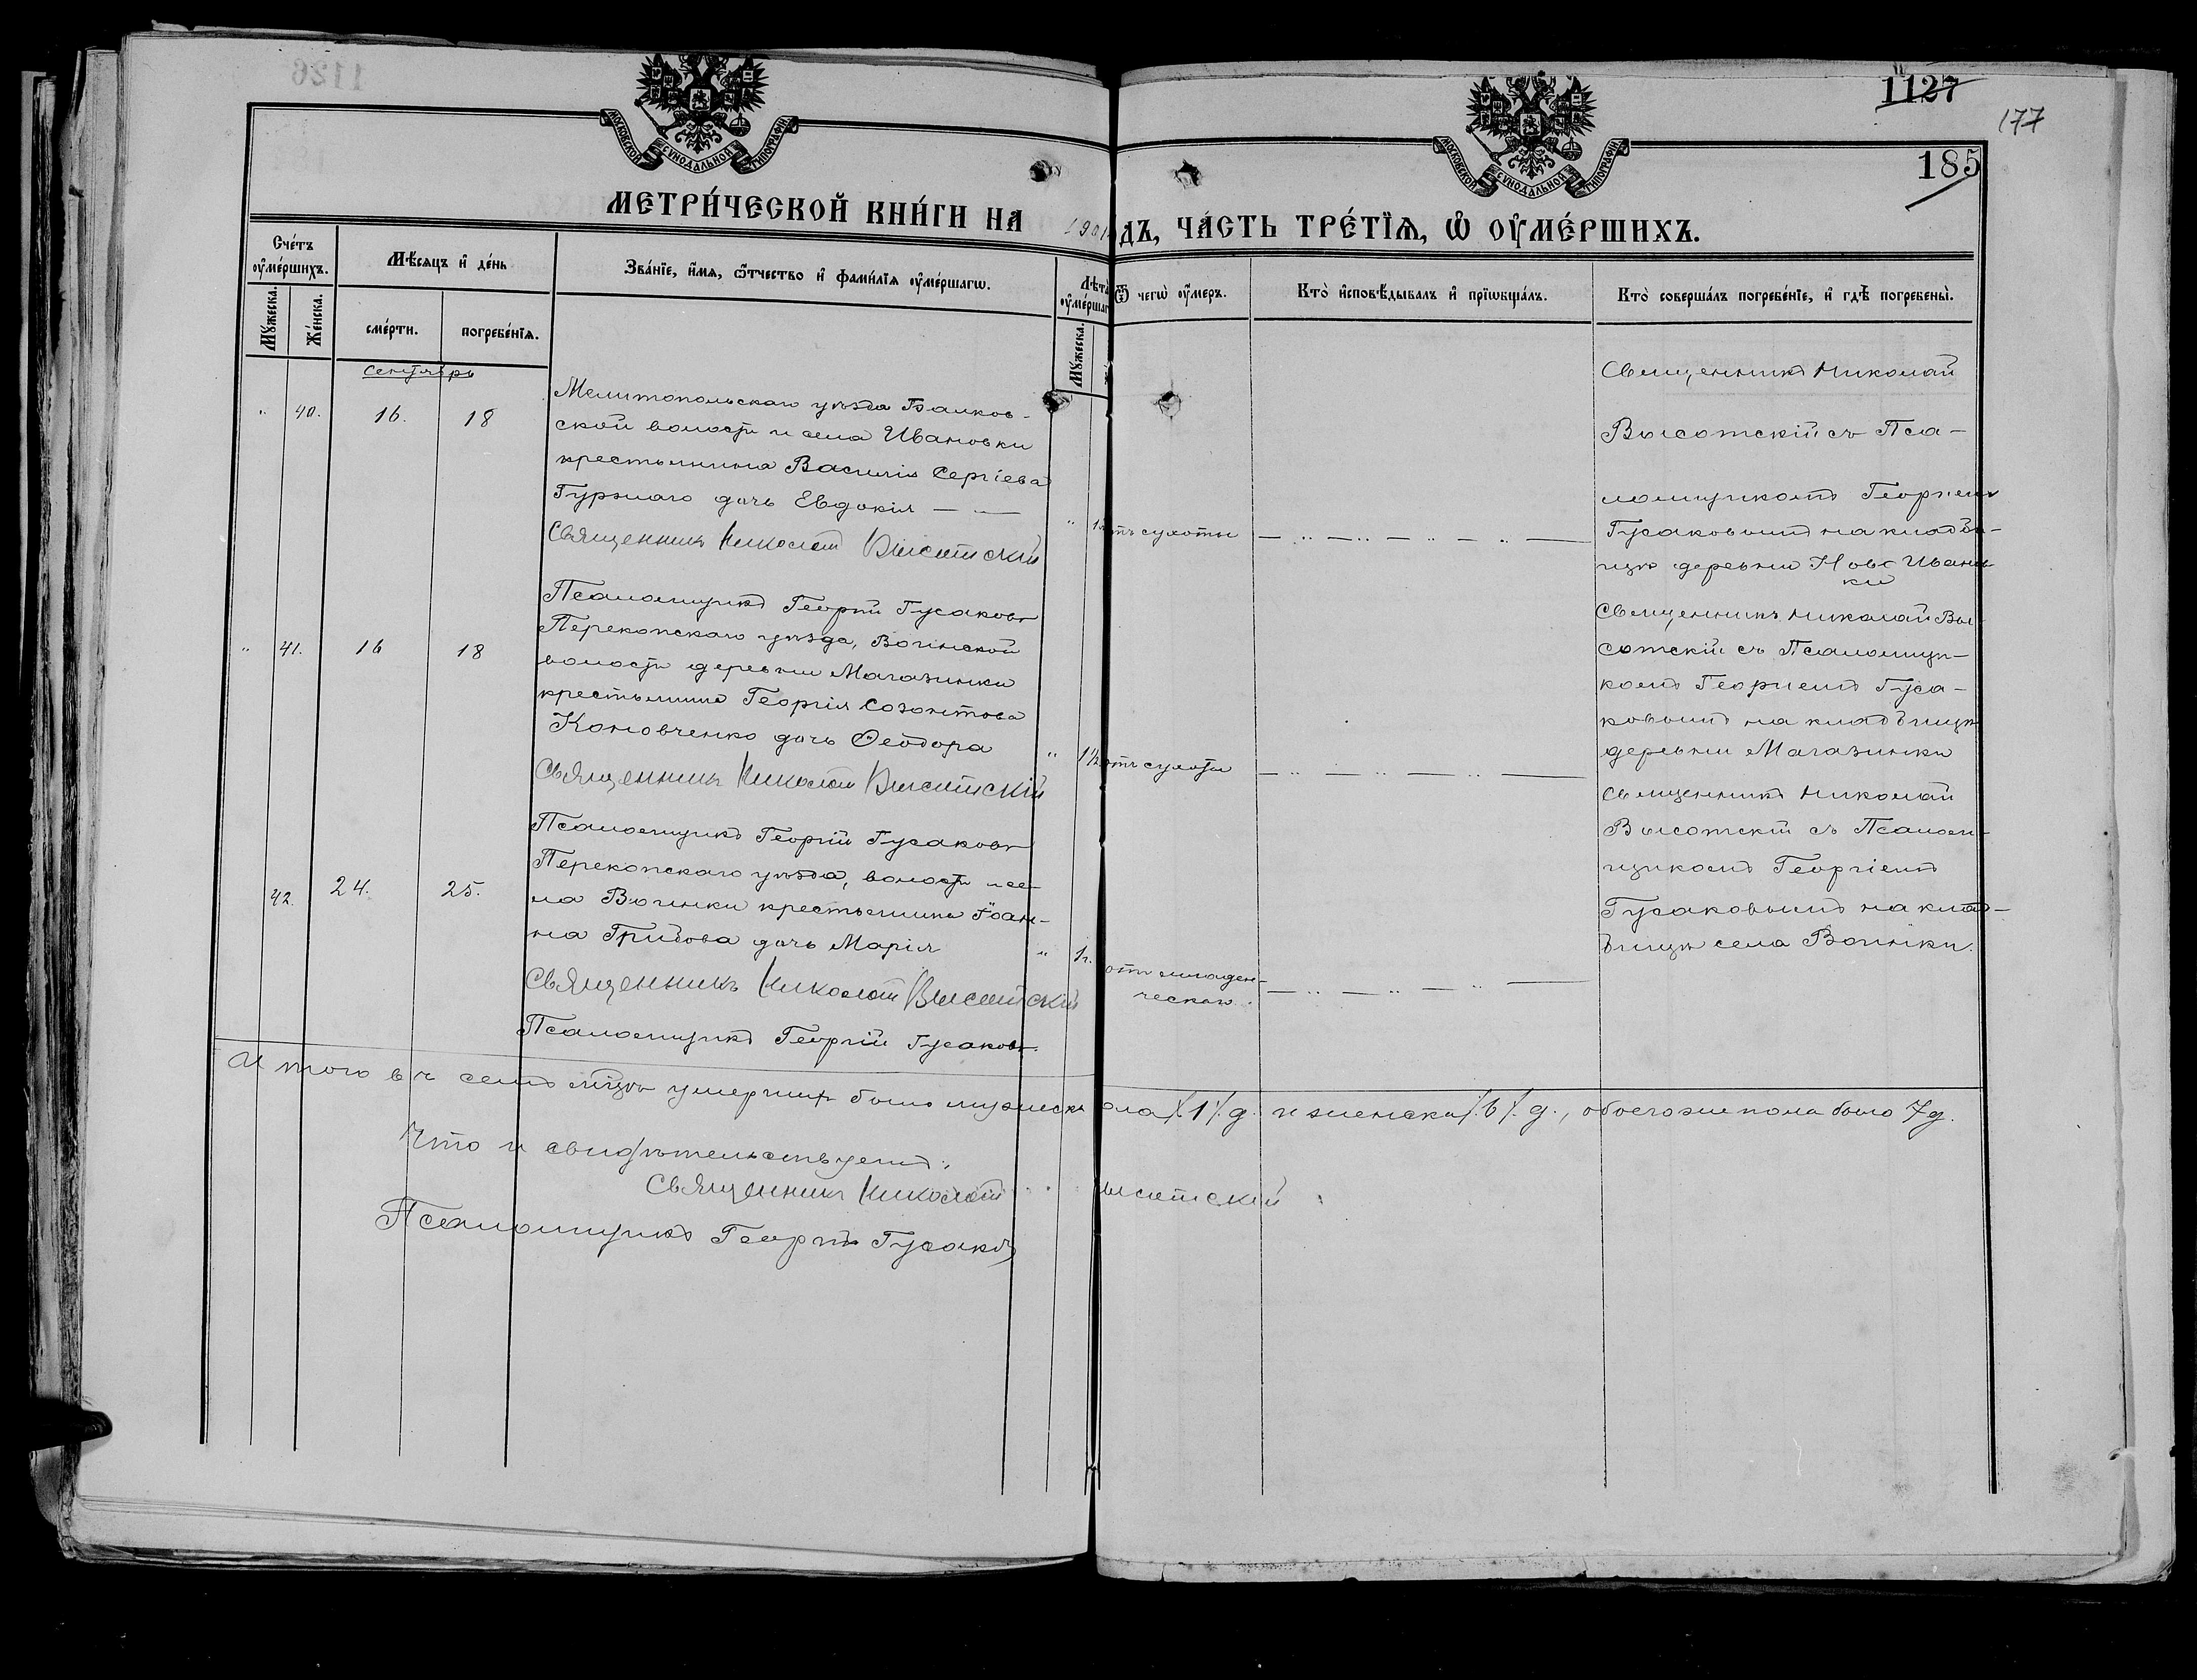 1127
177
185
МОСКОВСКОЙ СУНОДАЛЬНОЙ ТИПОГРАФІИ
МОСКОВСКОЙ СУНОДАЛЬНОЙ ТИПОГРАФІИ
МЕТРИ́ЧЕСКОЙ КНИ́ГИ НА 190 ДЪ, ЧА́СТЬ ТРЕ́ТЇѦ, Ѡ҆ ОУ҆МЕ́РШИХЪ.
Сче́тъ оу҆ме́ршихъ.
Мꙋ́жеска.
Же́нска.
Мѣ́сяцъ и҆ де́нь
сме́рти.
погребе́нїя.
Зва́нїе, и҆́мя, ѻ҆́тчество и҆ фами́лїя оу҆ме́ршагѡ.
Лѣта оу҆ме́ршаг
Мꙋ́жеска.
Ѿ чегѡ̀ оу҆́меръ.
Кто̀ и҆сповѣ́дывалъ и҆ прїѡбща́лъ.
Кто̀ соверша́лъ погребе́нїе, и҆ гдѣ̀ погребены̀.
Сентябрь
" 40. 16. 18
Мелитопольскаго уѣзда Балков-
ской волости и села Ивановки
крестьянина Василія Сергіева
Гуржаго дочь Евдокія
Священникъ Николай Высотскій
Псаломщикъ Георгій Гусаковъ
отъ сухоты
Священникъ Николай
Высотскій съ Пса-
ломщикомъ Георгіем
Гусаковымъ на кладби-
щѣ деревни Ново Иванов-
ки
" 41. 16 18
Перекопскаго уѣзда, Воинской
волости деревни Магазинки
крестьянина Георгія Созонтова
Коновченко дочь Ѳеодора
Священникъ Николай Высотскій
Псаломщикъ Георгій Гусаковъ
" 1½ отъ сухоты
Священникъ Николай Вы-
сотскій съ Псаломщи-
комъ Георгіемъ Гуса-
ковымъ на кладбищѣ
деревни Магазинки
42. 24. 25.
Перекопскаго уѣзда, волости и се-
ла Воинки крестьянина Іоан-
на Грибова дочь Марія
Священникъ Николай Высотскій
Псаломщикъ Георгій Гусаковъ.
" 1 г. отъ младен-
ческой.
Священникъ Николай
Высотскій съ Псалом-
щикомъ Георгіемъ
Гусаковымъ на клад-
бищѣ села Воинки.
Итого въ семъ мѣсцѣ умершихъ было мужеска пола /1/ д. и женска /6/ д., обоего же пола было 7 д.
Что и свидѣтельствуемъ:
Священникъ Николай Высотскій
Псаломщикъ Георгій Гусаковъ